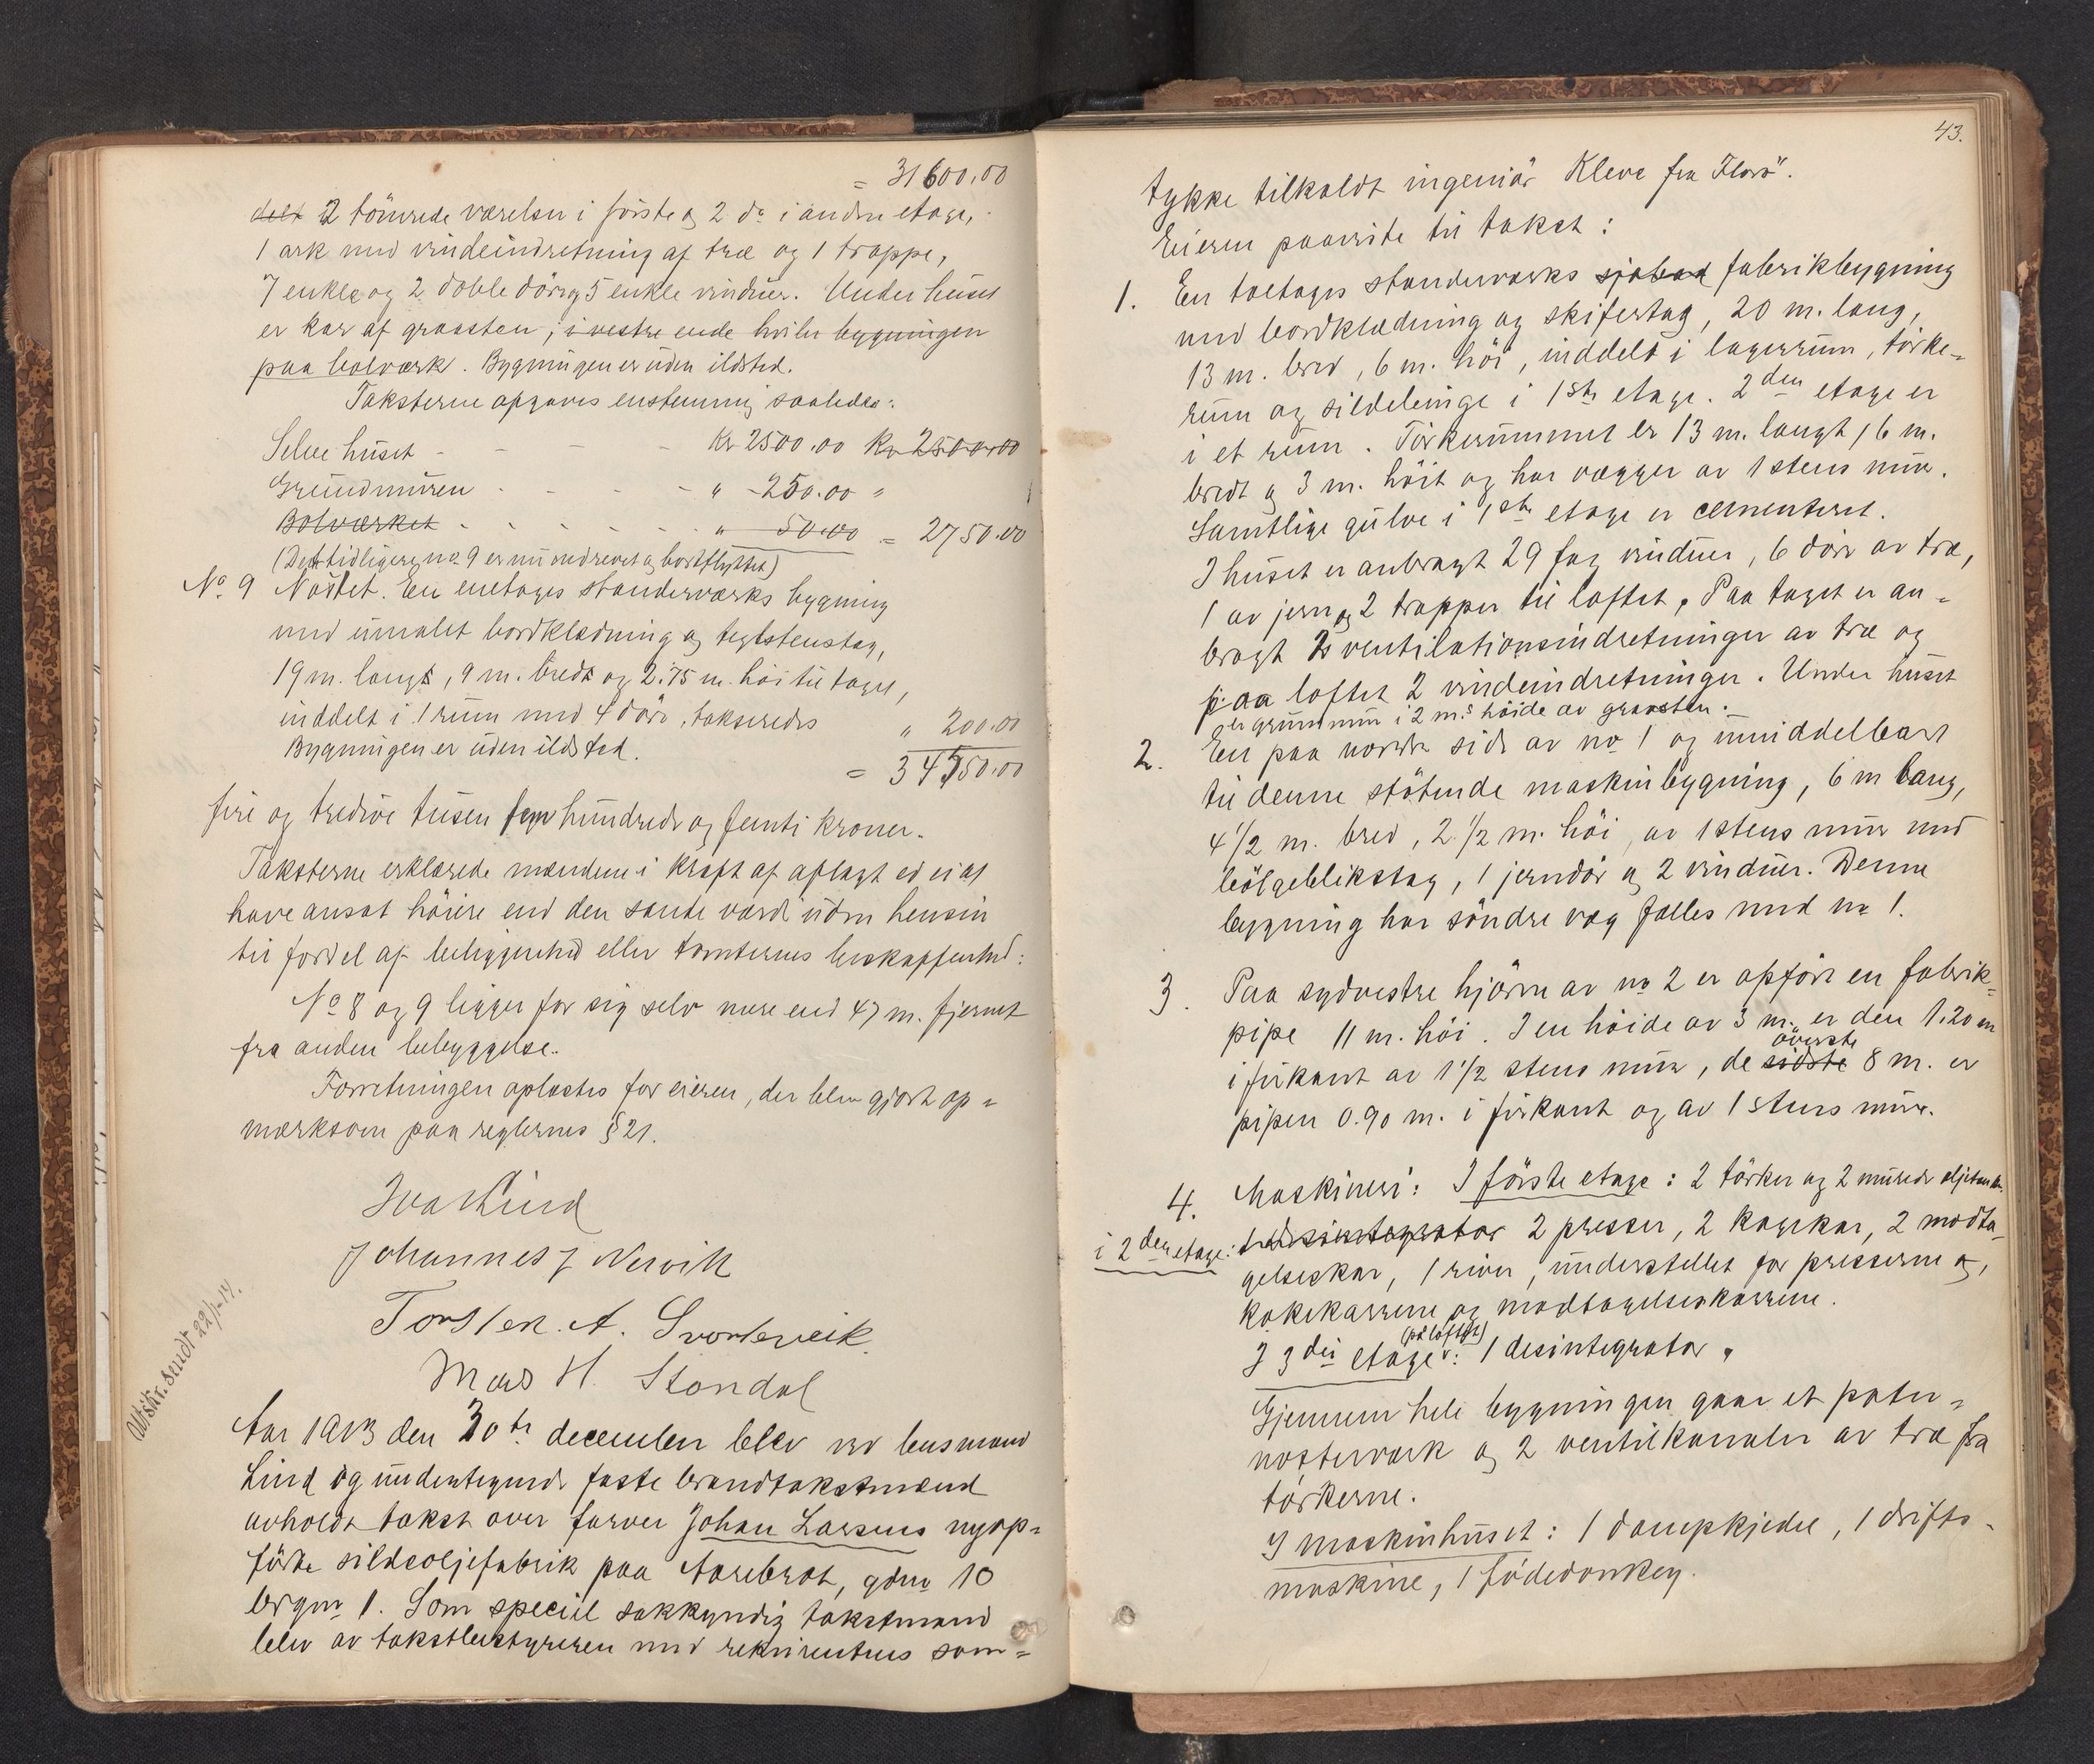 = 31600.00
delt 2 tömrede værelser i förste og 2 do i andre etage,
1 ark med vindeindretning af træ og 1 trappe,
7 enkle og 2 doble döre og 5 enkle vinduer. Under huset
er kar af graasten; i vestre ende hviler bygningen
paa bolværk. Bygningen er uden ildsted.
Taksterne opgaves enstemmig saaledes:
Selve huset - - - Kr 2500.00 Kr 2500.00
Grundmuren - - - - " 250.00 "
Bolværket - - - - - - " 50.00 = 2750.00
(Det tidligere no 9 er nu nedrevet og bortflyttet)
No 9 Nöstet. En enetages standerværks bygning
med umalet bordklædning og teglstenstag,
19 m. langt, 9 m. bredt og 2.75 m. höi til taget,
inddelt i 1 rum med 4 döre, takseredes " 200.00
Bygningen er uden ildsted.
= 34550.00
fire og tredive tusen fem hundrede og femti kroner.
Taksterne erklærede mændene i kraft af aflagt ed ei at
have ansat höiere end den sande værdi uden hensin
til fordel af beliggenhed eller tomternes beskaffenhed:
No 8 og 9 ligger for sig selv mere end 47 m. fjernet
fra anden bebyggelse.
Forretningen oplæstes for eieren, der blev gjort op=
merksom paa reglernes § 21.
Ivar Lind
Johannes J Nervik
Torsten. A. Svortevik
Mads H. Standal
Utskr. sendt 22/1-14.
Aar 1913 den 30te december blev ved lensmand
Lind og undertegnede faste brandtakstmænd
avholdt takst over farver Johan Larsens nyop=
förte sildeoljefabrik paa Aarebrot, gdno 10
brgno 1. Som speciel sakkyndig takstmand
blev av takstbestyreren med rekvirentens sam=
43.
tykke tilkaldt ingeniör Kleve fra Florö.
Eieren paaviste til takst:
1. En toetages standerværks sjöbod fabrikbygning
med bordklædning og skifertag, 20 m. lang,
13 m. bred, 6 m. höi, inddelt i lagerrum, törke=
rum og sildebinge i 1ste etage. 2den etage er
i et rum. Törkerummet er 13 m. langt, 6 m.
bredt og 3 m. höit og har vægger av 1 stens mur.
Samtlige gulve i 1ste etage er cementeret.
I huset er anbragt 29 fag vinduer, 6 döre av træ,
1 av jern og 2 trapper til loftet. Paa taget er an=
bragt 2 ventilationsindretninger av træ og
paa loftet 2 vindeindretninger. Under huset
er grunmur i 2 m.s höide av graasten.
2. En paa nordre side av no 1 og umiddelbart
til denne stötende maskinbygning, 6 m lang,
4 1/2 m. bred, 2 1/2 m. höi, av 1 stens mur med
bölgeblikstag, 1 jerndör og 2 vinduer. Denne
bygning har söndre væg fælles med no 1.
3. Paa sydvestre hjörne av no 2 er opfört en fabrik=
pipe 11 m. höi. I en höide av 3 m. er den 1.20 m
i firkant av 1 1/2 stens mur, de sidste överste 8 m. er
pipen 0.90 m. i firkant og av 1 stens mur.
4. Maskineri: I förste etage: 2 törker og 2 murede oljetanke.
i 2den etage: 1 desintegrator 2 presser, 2 kogekar, 2 modta=
gelseskar, 1 river, understellet for presserne og,
kokekarrene og modtagelseskarrene.
I 3die etage (på loftet): 1 desintegrator.
Gjennem hele bygningen gaar et pater=
nosterværk og 2 ventilkanaler av træ fra
törkerne.
I maskinhuset: 1 dampkjedel, 1 drifts=
maskine, 1 födedonkey.